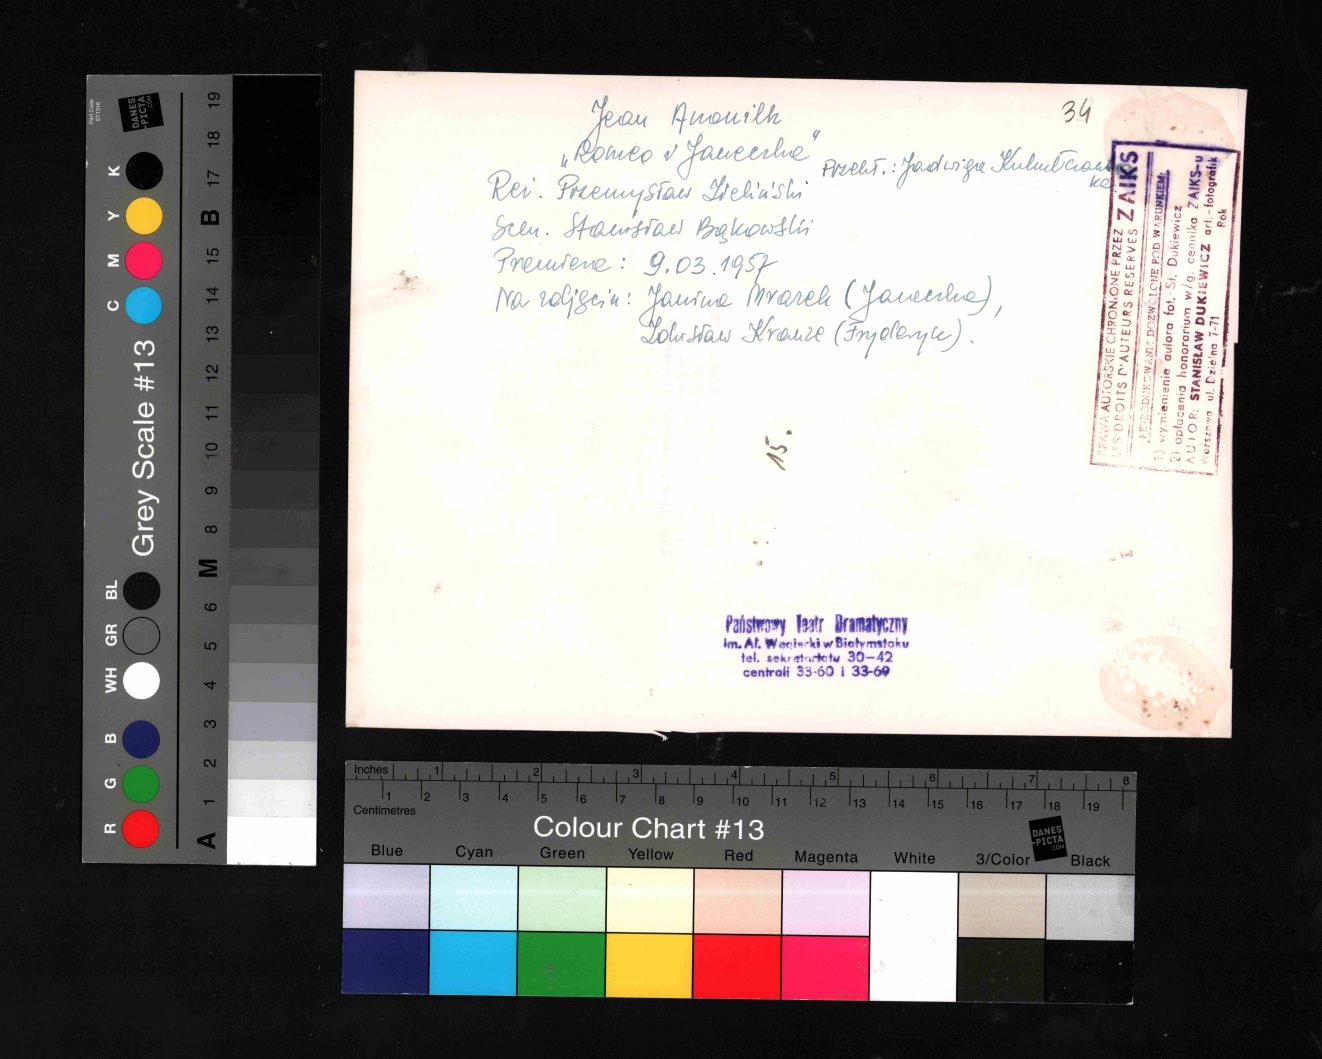 Jean Anouilh
34
„Romeo i Janeczka"
Przekł.: Jadwiga
Reż. Przemysław Zieliński
Scen. Stanisław Bąkowski
Premiera: 9.03.1957
Na zdjęciu: Janina Mrazek (Janeczka),
Zdzisław Krauze (Fryderyk).
15.
PRAWA AUTORSKIE CHRONIONE PRZEZ ZAIKS
LES DROITS D'AUTEURS RESERVES
REPRODUKOWANIE DOZWOLONE POD WARUNKIEM:
1) wymienienie autora fot.-St. Dukiewicz
2) opłacenia honorarium w/g. cennika ZAIKS-u
AUTOR: STANISŁAW DUKIEWICZ art.-fotografik
Warszawa ul. Dzielna 7-71 Rok
Państwowy Teatr Dramatyczny
im. Al. Węgierki w Białymstoku
tel. sekretariatu 30-42
centrali 33-60 i 33-69
Part Code
ST1316
DANES
-PICTA
.COM
Grey Scale #13
K Y M C
BL GR WH B G R
19 18 17 B 15 14 13 12 11 10 9 8 M 6 5 4 3 2 1 A
Inches 1 2 3 4 5 6 7 8
1 2 3 4 5 6 7 8 9 10 11 12 13 14 15 16 17 18 19
Centimetres
Colour Chart #13
DANES
-PICTA
.COM
Blue Cyan Green Yellow Red Magenta White 3/Color Black